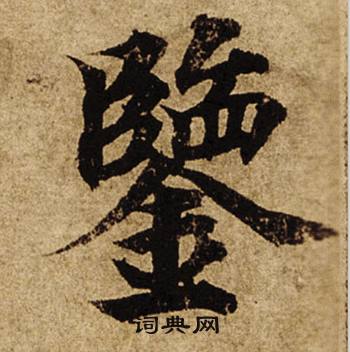 鑒
词典网